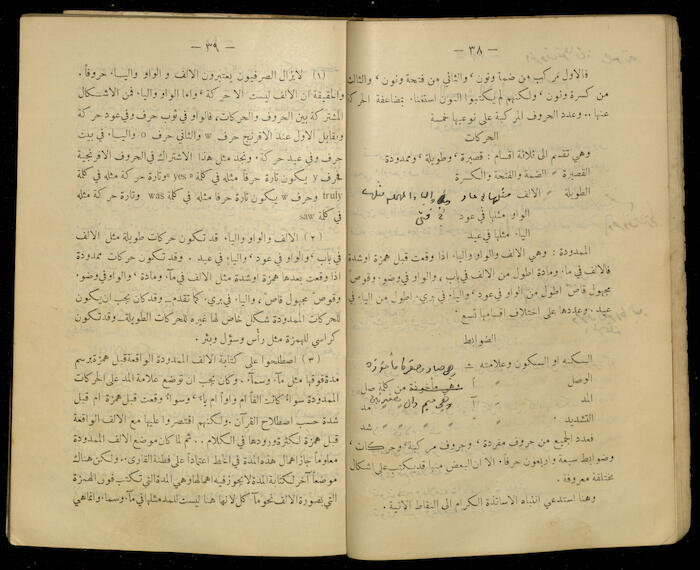 — ٣٨ —
فالاول تركب من ضمة ونون ، والثاني من فتحة ونون ، والثالث
من كسرة ونون ، ولكنهم لم يكتبوا النون استغناء بمضاعفة الحركة
عنها .. وعدد الحروف المركبة على نوعيها خمسة
الحركات
وهي تقسم الى ثلاثة اقسام : قصيرة ، وطويلة ، وممدودة
القصيرة = الضمة والفتحة والكسرة
الطويلة = الالف مثلها في عاد
الواو مثلها في عود
الياء مثلها في عيد
الممدودة : وهي الالف والواو والياء اذا وقعت قبل همزة اوشدة
فالالف في ماء ومادة اطول من الالف في باب ، والواو في وضوء وقوص
مجهول قاص اطول من الواو في عود ، والياء في بريء اطول من الياء في
عيد . وعددها على اختلاف اقسامها تسع .
الضوابط
السكتة او السكون وعلامته =
الوصل » أ من كلمة صل
المد » آ مد
التشديد » » شد
فعدد الجميع من حروف مفردة ، وحروف مركبة وحركات ،
وضوابط سبعة واربعون حرفاً . الا ان البعض منها قد يكتب على اشكال
مختلفة معروفة .
وهنا استدعي انتباه الاساتذة الكرام الى النقاط الاتية .
— ٣٩ —
(١) لايزال الصرفيون يعتبرون الالف والواو والياء حروفاً .
والحقيقة ان الالف ليست الا حركة ، واما الواو والياء فمن الاشكال
المشتركة بين الحروف والحركات ، فالواو في ثوب حرف وفي عود حركة
ويقابل الاول عند الافرنج حرف w والثاني حرف o والياء في بيت
حرف وفي عيد حركة . ونجد مثل هذا الاشتراك في الحروف الافرنجية
فحرف y يكون تارة حرفا مثله في كلمة « yes » وتارة حركة مثله في كلمة
truly وحرف w يكون تارة حرفا مثله في كلمة was وتارة حركة مثله
في كلمة saw
(٢) الالف والواو والياء قد تكون حركات طويلة مثل الالف
في باب ، والواو في عود ، والياء في عيد . وقد تكون حركات ممدودة
اذا وقعت بعدها همزة اوشدة مثل الالف في ماء ومادة ، والواو في وضوء
وقوص مجهول قاص ، والياء في بريء كما تقدم . وقد كان يجب ان يكون
للحركات الممدودة شكل خاص لها غيره للحركات الطويلة . وقد تكون
كراسي للهمزة مثل رأس وسؤل وبئر .
(٣) اصطلحوا على كتابة الالف الممدودة الواقعة قبل همزة برسم
مدة فوقها مثل مآء وسمآء . وكان يجب ان توضع علامة المد على الحركات
الممدودة سواء كانت الفا ام واوا ام ياء ، وسواء وقعت قبل همزة ام قبل
شدة حسب اصطلاح القرآن . ولكنهم اقتصروا عليها مع الالف الواقعة
قبل همزة لكثرة ورودها في الكلام .. ثم لما كان موضع الالف الممدودة
معلوماً جاز اهمال هذه المدة في الخط اعتماداً على فطنة القارئ .. ولكن هناك
موضعاً آخر لكتابة المدة لايجوز فيه اهمالها وهي المدة التي تكتب فوق الهمزة
التي بصورة الالف نحو مآكل لانها هنا ليست للمد مثلها في مآء وسمآء وانما هي